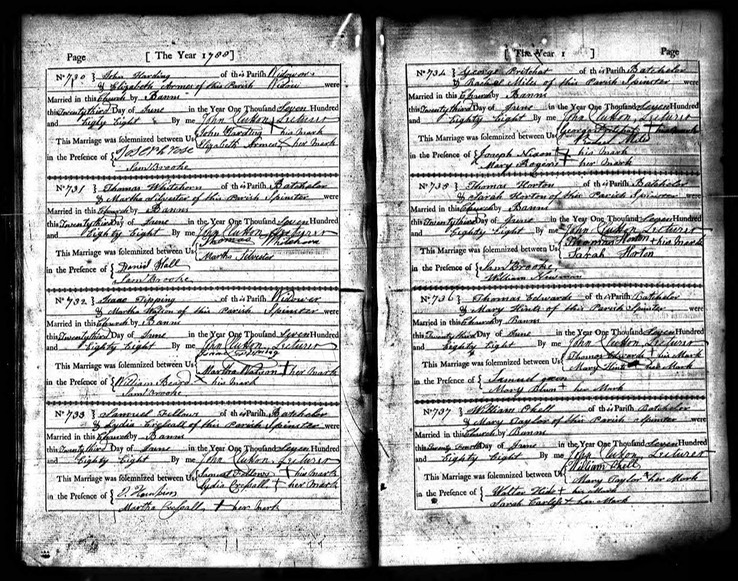 Page [ The Year 1788 ]
No 730 } John Harding of this Parish Widower
& Elizabeth Armes of this Parish Widow were
Married in this Church by Banns
this Twenty third Day of June in the Year One Thousand Seven Hundred
and Eighty Eight By me John Clutton Lecturer
This Marriage was solemnized between Us { John Harding + his Mark
Elizabeth Armes + her Mark
in the Presence of { Joseph
Saml Brooke
No 731 } Thomas Whitehorn of this Parish Batchelor
& Martha of this Parish Spinster were
Married in this Church by Banns
this Twenty third Day of June in the Year One Thousand Seven Hundred
and Eighty Eight By me John Clutton Lecturer
This Marriage was solemnized between Us { Thomas Whitehorn
Martha
in the Presence of { Daniel Hall
Saml Brooke
No 732 } Isaac Tipping of this Parish Widower
& Martha Watson of this Parish Spinster were
Married in this Church by Banns
this Twenty third Day of June in the Year One Thousand Seven Hundred
and Eighty Eight By me John Clutton Lecturer
Isaac Tipping
This Marriage was solemnized between Us { Martha Watson + her Mark
in the Presence of { William Beard his Mark
Saml Brooke
No 733 } Samuel Fellows of this Parish Batchelor
& Lydia of this Parish Spinster were
Married in this Church by Banns
this Twenty third Day of June in the Year One Thousand Seven Hundred
and Eighty Eight By me John Clutton Lecturer
This Marriage was solemnized between Us { Samuel Fellows + his Mark
Lydia + her Mark
in the Presence of {
Martha + her Mark
[ The Year 1 ] Page
No 734 } George Pritchat of this Parish Batchelor
& Rachel Mils of this Parish Spinster were
Married in this Church by Banns
this Twenty third Day of June in the Year One Thousand Seven Hundred
and Eighty Eight By me John Clutton Lecturer
This Marriage was solemnized between Us { George Pritchat + his Mark
Rachel Mils
in the Presence of { Joseph Nixon + his Mark
Mary Rogers + her Mark
No 735 } Thomas Horton of this Parish Batchelor
& Sarah Horton of this Parish Spinster were
Married in this Church by Banns
this Twenty third Day of June in the Year One Thousand Seven Hundred
and Eighty Eight By me John Clutton Lecturer
This Marriage was solemnized between Us { Thomas Horton + his Mark
Sarah Horton
in the Presence of { Saml Brooke
William Newman
No 736 } Thomas Edwards of this Parish Batchelor
& Mary of this Parish Spinster were
Married in this Church by Banns
this Twenty third Day of June in the Year One Thousand Seven Hundred
and Eighty Eight By me John Clutton Lecturer
This Marriage was solemnized between Us { Thomas Edwards + his Mark
Mary + her Mark
in the Presence of { Samuel
Mary + her Mark
No 737 } William Shell of this Parish Batchelor
& Mary Taylor of this Parish Spinster were
Married in this Church by Banns
this Twenty Fourth Day of June in the Year One Thousand Seven Hundred
and Eighty Eight By me John Clutton Lecturer
This Marriage was solemnized between Us { William Shell
Mary Taylor her Mark
in the Presence of { Walter + his Mark
Sarah + her Mark